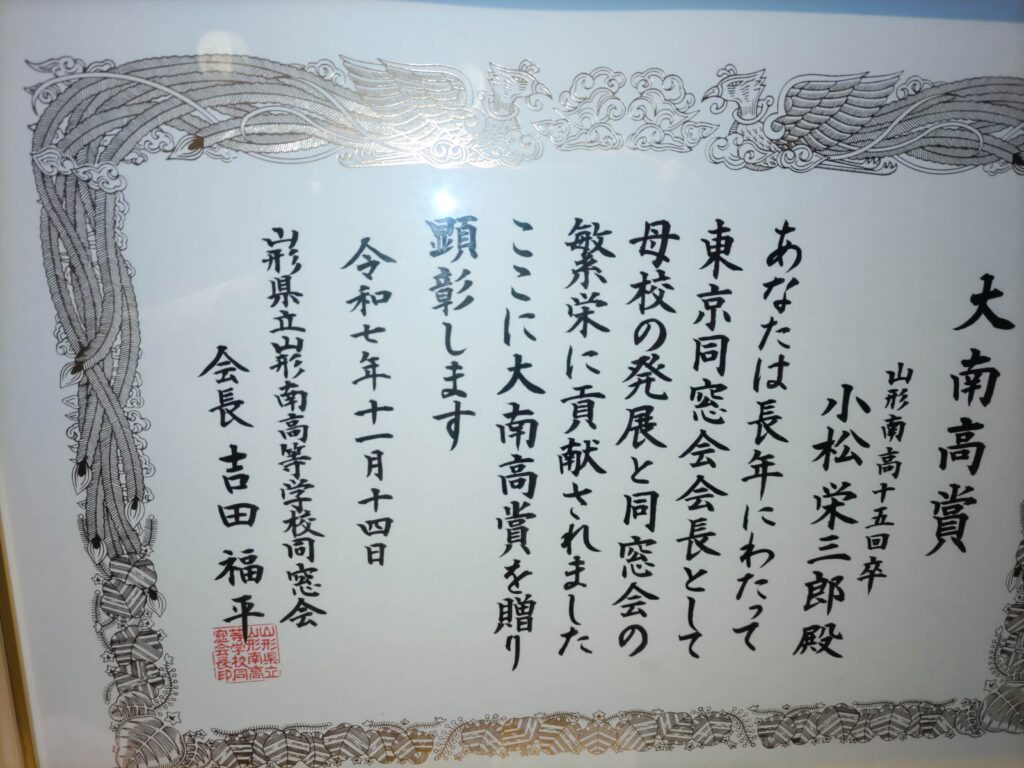 大南高賞
山形南高十五回卒
小松栄三郎殿
あなたは長年にわたって
東京同窓会会長として
母校の発展と同窓会の
繁栄に貢献されました
ここに大南高賞を贈り
顕彰します
令和七年十一月十四日
山形県立山形南高等学校同窓会
会長吉田福平
山形県立
山形南高
等学校同
窓会長印